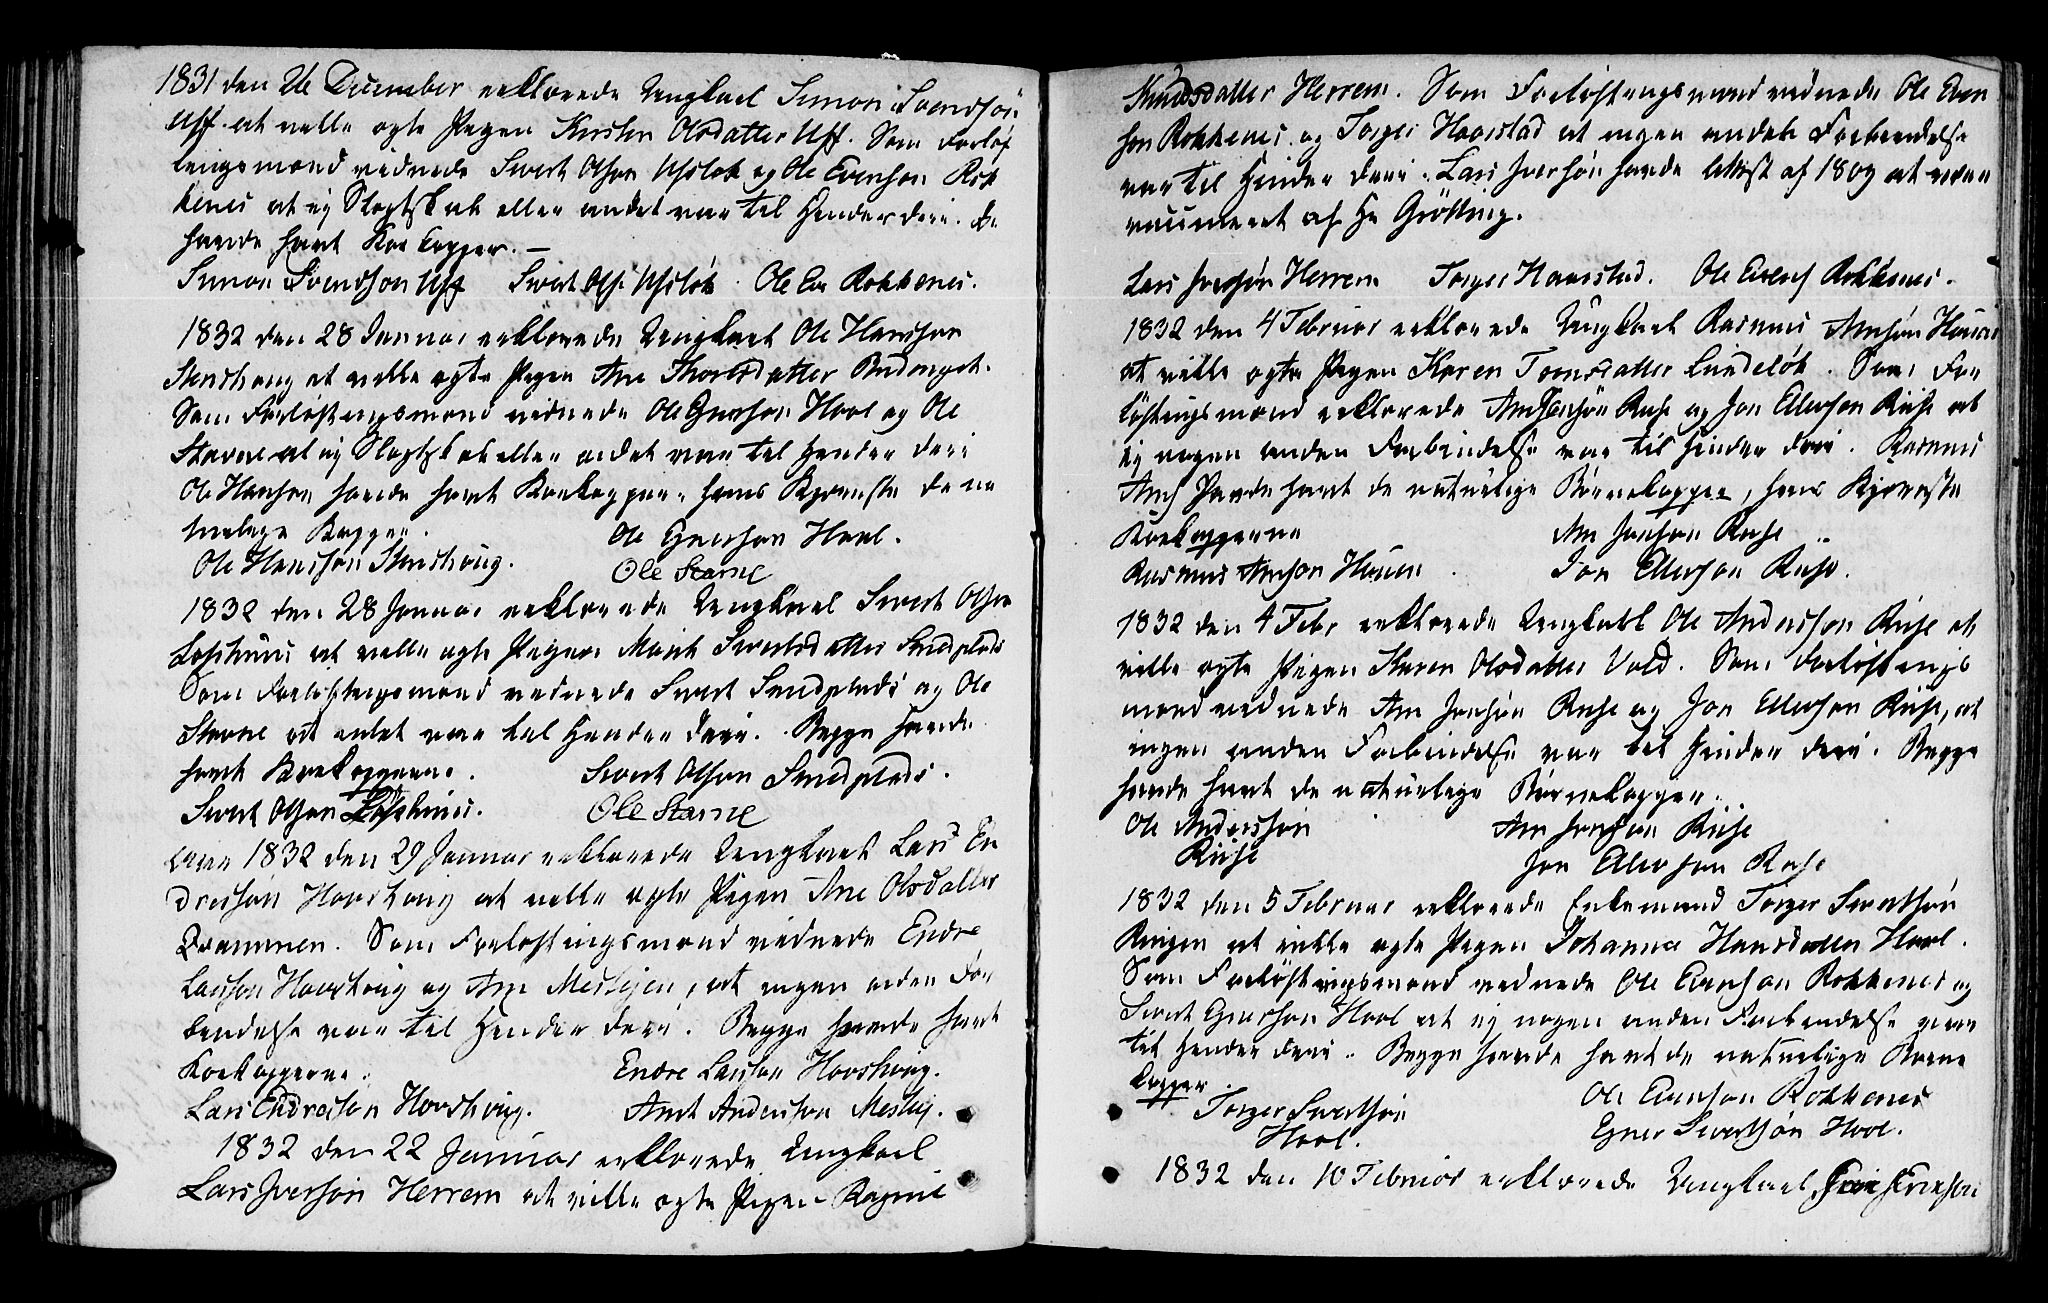 1831 den 26 December erklærede Ungkarl Simon Svendsøn
Uff at ville ægte Pigen Kirsten Olsdatter Uff. Som Forløf
tingsmænd vidnede Sivert Olsøn Ufsløk og Ole Evenson Rok
kenes at ej Slægtskab eller andet var til Hinder deri. De
havde havt Koe kopper. —
Simon Svendson Uff Sivert Ols. Ufsløk. Ole Ev Rokkenes.
1832 den 28 Januar erklærede Ungkarl Ole Hansson
Stenshaug at ville ægte Pigen Ane Thorsdatter
Som Forløftingsmænd vidnede Ole Gunerson Hool og Ole
Starne at ej Slægtskab eller andet var til Hinder deri
Ole Hanson havde havt Koekopperne hans Kjæreste de na
turlige Kopper.
Ole Gunerson Hool.
Ole Hansson Stenshaug.
Ole Starne
1832 den 28 Januar erklærede Ungkarl Sivert Olsøn
at ville ægte Pigen Marit Sivertsdatter Smedplads
Som Forløftingsmænd vidnede Sivert Smedplads og Ole
Starne at intet var til Hinder deri. Begge havde
havt Koekopperne. Sivert Olson Smedplads.
Sivert Olson Ole Starne
1832 den 29 Januar erklærede Ungkarl Lars En
dresøn Hovshaug at ville ægte Pigen Ane Olsdatter
Qvammen. Som Forløftingsmænd vidnede Endre
Larson Hovshaug og Arnt Meslejen, at ingen anden For
bindelse var til Hinder deri. Begge havde havt
Koekopperne. Endre Larson Hovshaug.
Lars Endreson Hovshaug. Arnt Anderson Meslej.
1832 den 22 Januar erklærede Ungkarl
Lars Iversøn Herrem at ville ægte Pigen Ragnil
Knudsdatter Herrem. Som Forløftingsmænd vidnede Ole Even
son Rokkenes og Torger Haarstad at ingen anden Forbindelse
var til Hinder deri. Lars Iversøn havde Attest af 1809 at være
vaccineret af Hr Grötting.
Lars Iversøn Herrem Torger Haarstad. Ole Evens Rokkenes.
1832 den 4 Februar erklærede Ungkarl Rasmus Arnsøn Houen
at ville ægte Pigen Karen Tomsdatter Lundeløk. Som For
løftingsmænd erklærede Arn Jonsøn Riise og Jon Ellevson Riise at
ej nogen anden Forbindelse var til Hinder deri. Rasmus
Arns havde havt de naturlige Børnekopper, hans Kjæreste
Koekopperne Arn Jonson Riise
Rasmus Arnson Houen. Jon Ellevson Riise.
1832 den 4 Febr erklærede Ungkarl Ole Andersson Riise at
ville ægte Pigen Karen Olsdatter Vold. Som Forløftings
mænd vidnede Arn Jonsøn Riise og Jon Ellevson Riise, at
ingen anden Forbindelse var til Hinder deri. Begge
havde havt de naturlige Børnekopper.
Ole Andersson Arn Jonson Riise
Riise Jon Ellevson Riise
1832 den 5 Februar erklærede Enkemand Torger Sivertsøn
Ringen at ville ægte Pigen Johanna Hansdatter Hool.
Som Forløftingsmænd vidnede Ole Evenson Rokkenes og
Sivert Gunerson Hool at ej nogen anden Forbindelse var
til Hinder deri. Begge havde havt de naturlige Børne
kopper. Ole Evenson Rokkenes
Torger Sivertsøn
Hool. Sivertsøn Hool.
1832 den 10 Februar erklærede Ungkarl